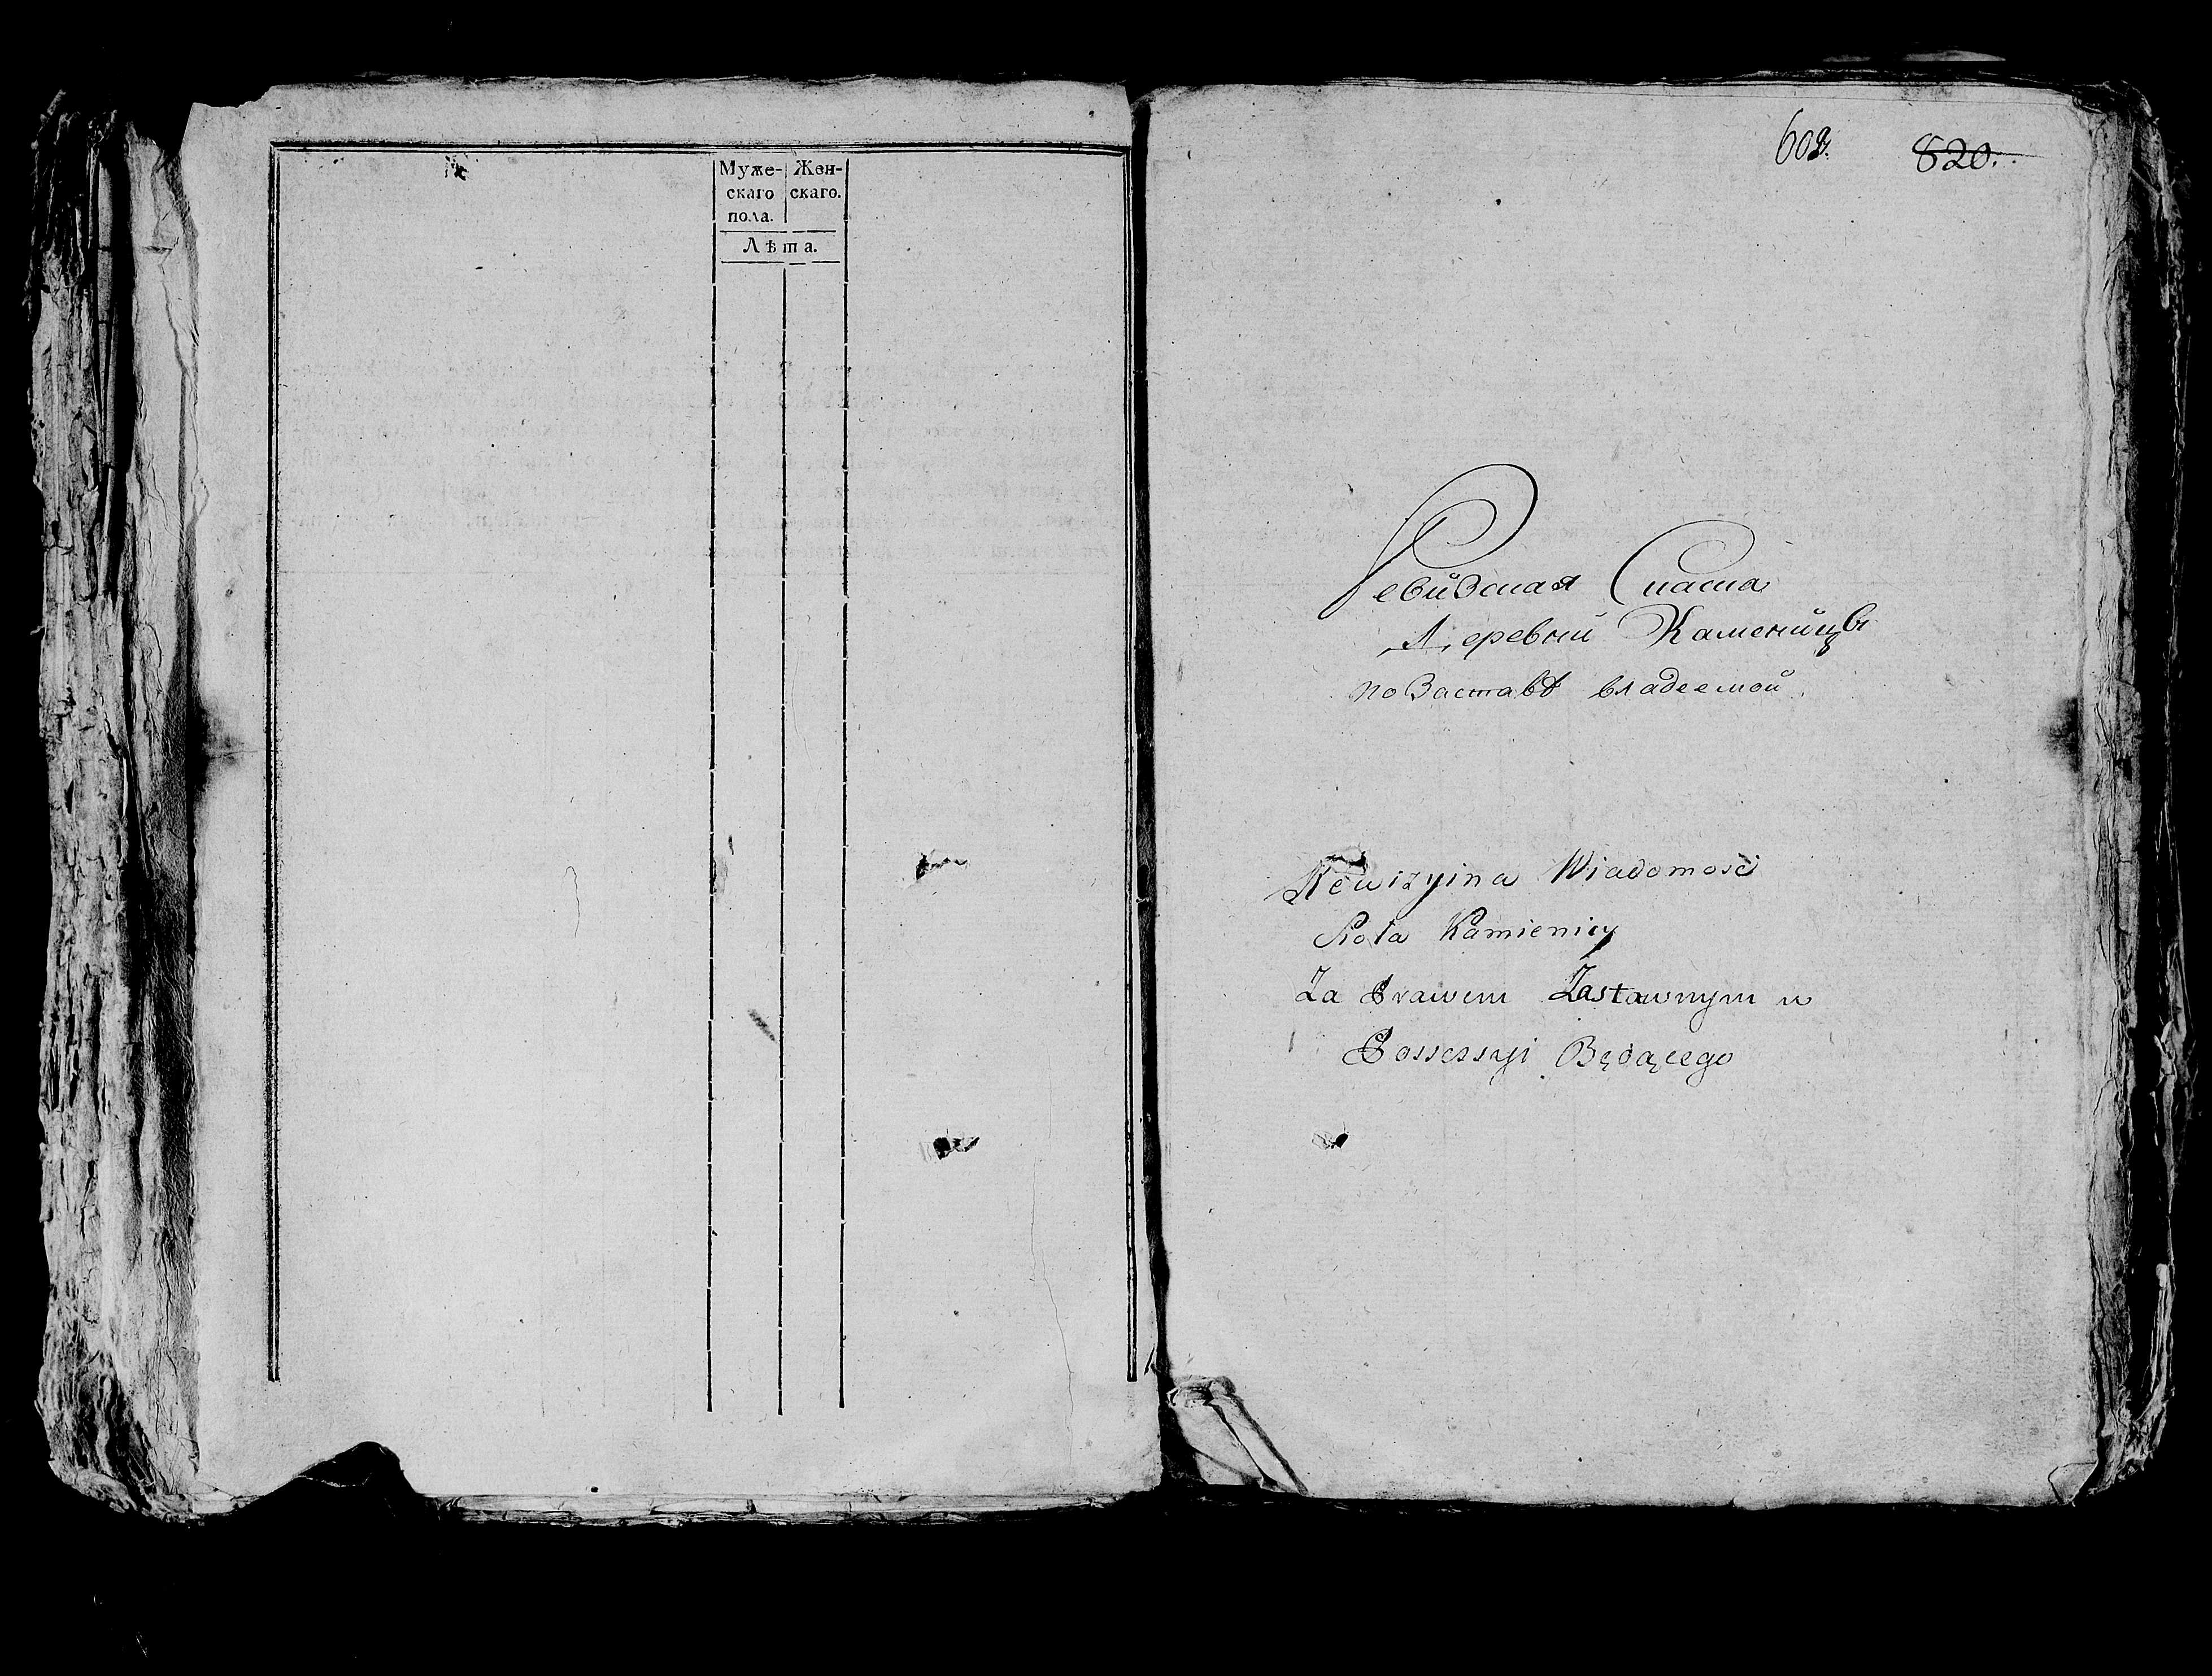 Муже-
скаго
пола.
Жен-
скаго.
Лѣта.
609.
820.
Ревизская Скаска
Деревни Каменицы
по Заставѣ владеемой
Rewizyina Wiadomość
Sioła Kamienicy
Za Prawem Zastawnym w
Possessyi Będącego